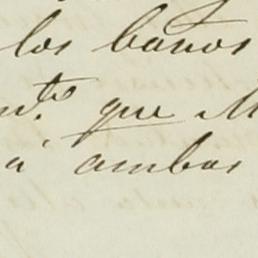 los baños
que M
á ambos